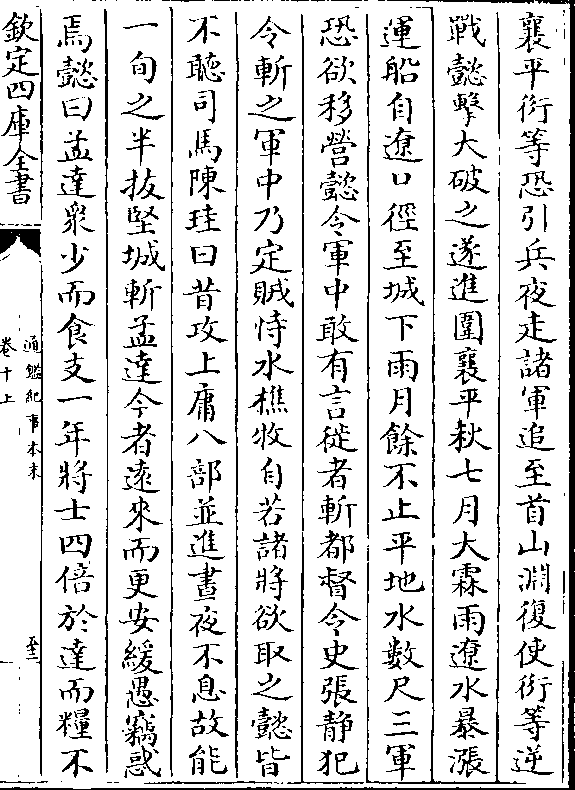 襄平衍等恐引兵夜走諸軍追至首山淵復使衍等逆
戰懿擊大破之遂進圍襄平秋七月大霖雨遼水暴漲
運船自遼口徑至城下雨月餘不止平地水數尺三軍
恐欲移營懿令軍中敢有言徙者斬都督令史張靜犯
令斬之軍中乃定賊恃水樵牧自若諸將欲取之懿皆
不聽司馬陳珪曰昔攻上庸八部並進晝夜不息故能
一旬之半拔堅城斬孟達今者遠來而更安緩愚竊惑
焉懿曰孟達衆少而食支一年將士四倍於達而糧不
欽定四庫全書
通鑑紀事本末
卷十上